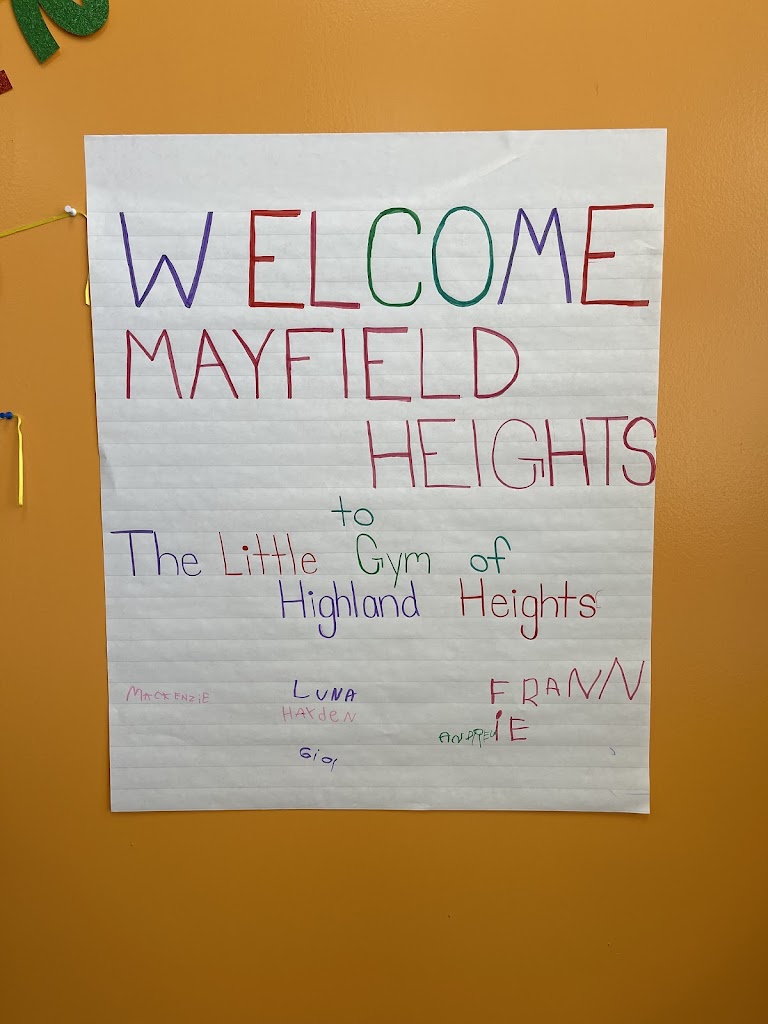 WELCOME
MAYFIELD
HEIGHTS
to
The Little Gym of
Highland Heights
MACKENZIE LUNA FRANN
HAYdEN
ANDREW iE